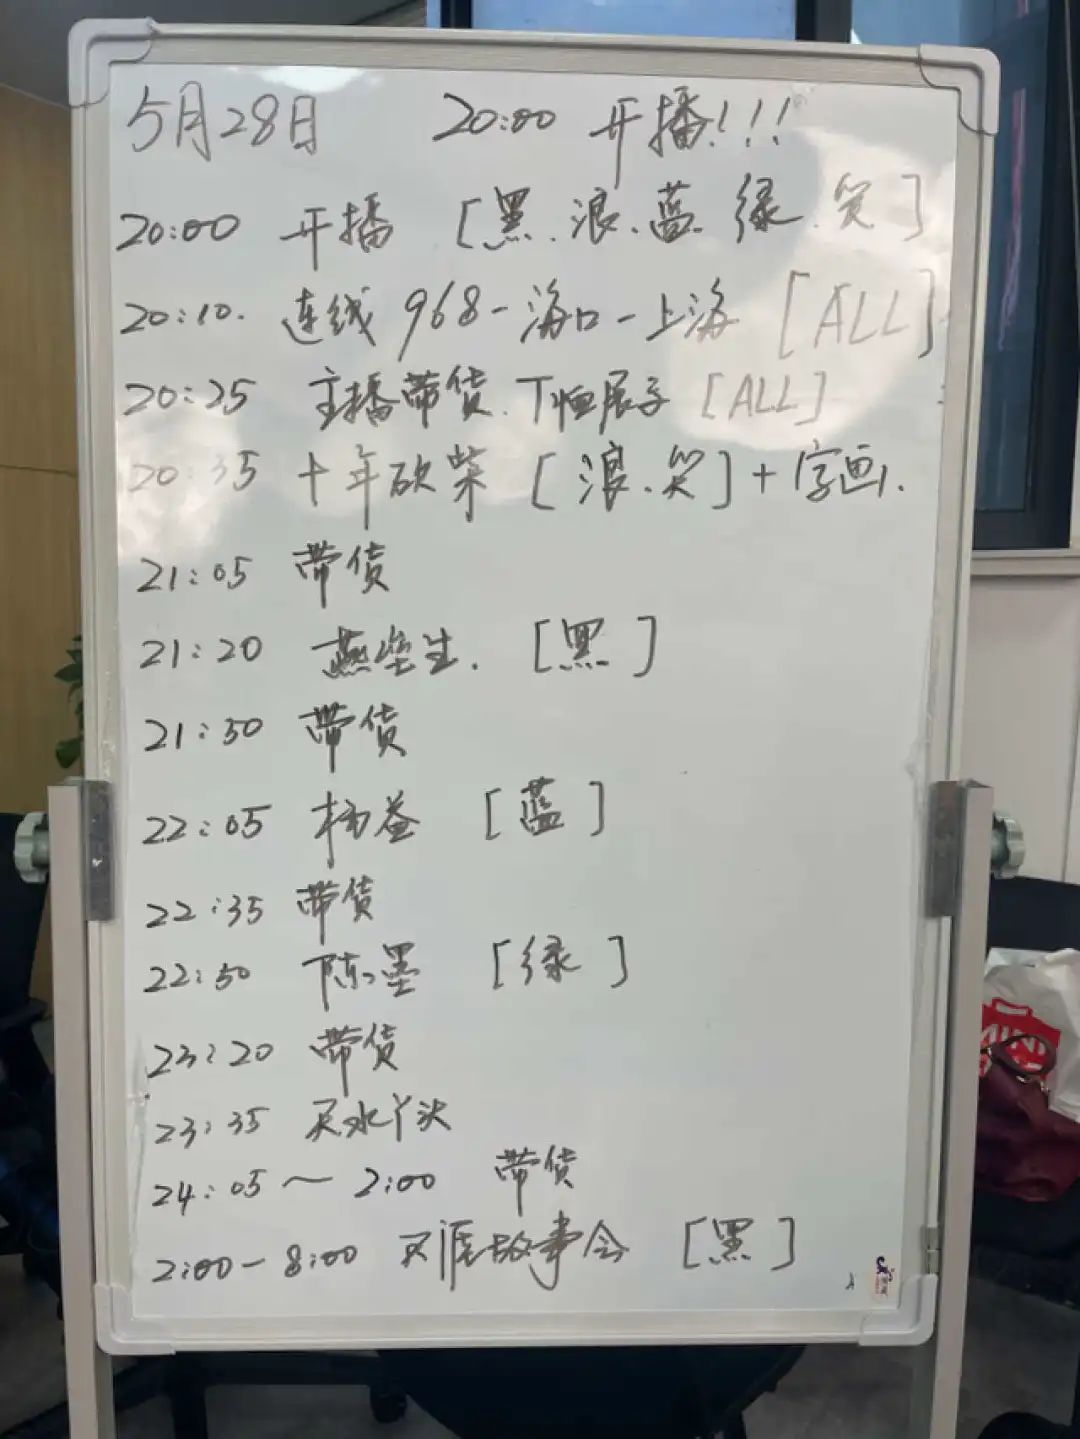 5月28日 20:00 开播!!!
20:00 开播 [黑.浪.蓝.绿.笑]
20:10. 连线 968-海口-上海 [ALL]
20:25 主播带货. T恤 [ALL]
20:35 十年砍柴 [浪.笑]+字画.
21:05 带货
21:20 燕垒生. [黑]
21:50 带货
22:05 杨益 [蓝]
22:35 带货
22:50 陈墨 [绿]
23:20 带货
23:35 天水丫头
24:05~2:00 带货
2:00-8:00 天涯故事会 [黑]
MINI